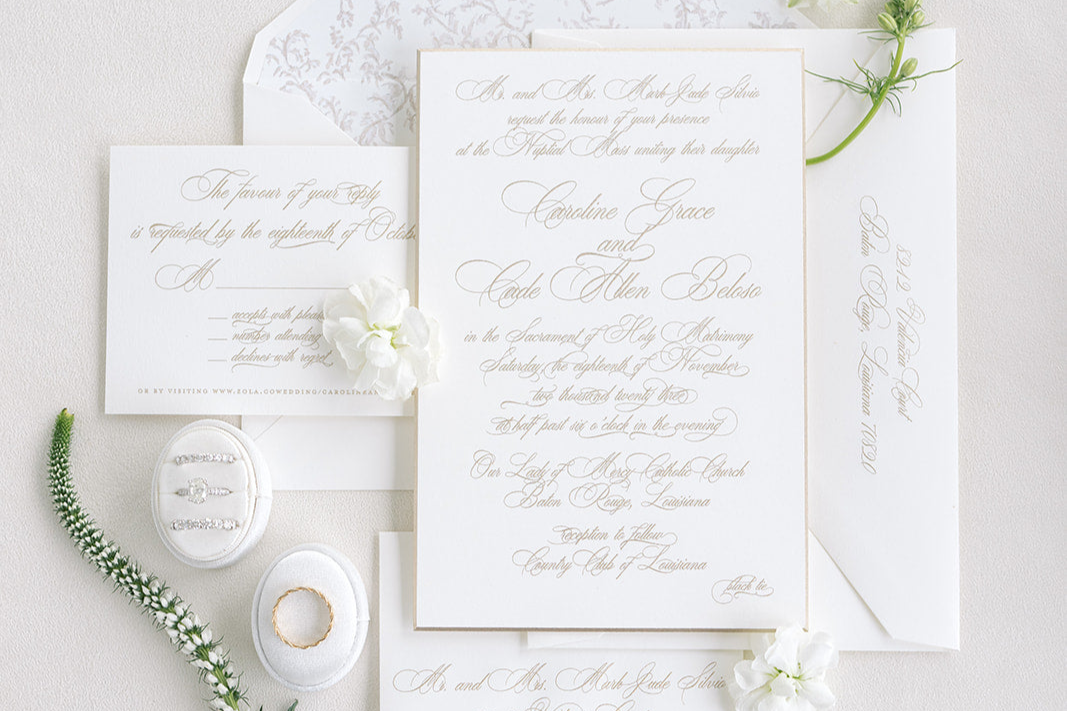 Mr. and Mrs. Mark Jude Silvio
request the honour of your presence
at the Nuptial Mass uniting their daughter
Caroline Grace
and
Cade Allen Beloso
in the Sacrament of Holy Matrimony
Saturday, the eighteenth of November
two thousand twenty three
at half past six o'clock in the evening
Our Lady of Mercy Catholic Church
Baton Rouge, Louisiana
reception to follow
Country Club of Louisiana
black tie
The favour of your reply
is requested by the eighteenth of Octob
M
accepts with
number attending
declines with regret
OR BY VISITING WWW.ZOLA.COWEDDING/CAROLINEAN
Valencia Court
Baton Rouge, Louisiana 70820
Mr. and Mrs. Mark Jude Silvio